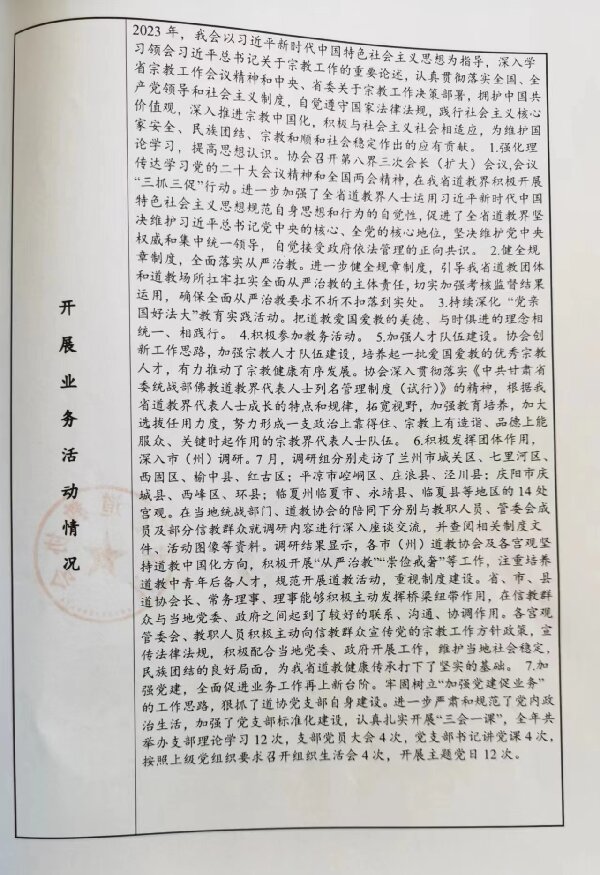 开展业务活动情况
2023 年，我会以习近平新时代中国特色社会主义思想为指导，深入学
习领会习近平总书记关于宗教工作的重要论述，认真贯彻落实全国、全
省宗教工作会议精神和中央、省委关于宗教工作决策部署，拥护中国共
产党领导和社会主义制度，自觉遵守国家法律法规，践行社会主义核心
价值观，深入推进宗教中国化，积极与社会主义社会相适应，为维护国
家安全、民族团结、宗教和顺和社会稳定作出的应有贡献。 1.强化理
论学习，提高思想认识。协会召开第八界三次会长（扩大）会议,会议
传达学习党的二十大会议精神和全国两会精神，在我省道教界积极开展
“三抓三促”行动。进一步加强了全省道教界人士运用习近平新时代中国
特色社会主义思想规范自身思想和行为的自觉性，促进了全省道教界坚
决维护习近平总书记党中央的核心、全党的核心地位，坚决维护党中央
权威和集中统一领导，自觉接受政府依法管理的正向共识。 2.健全规
章制度，全面落实从严治教。进一步健全规章制度，引导我省道教团体
和道教场所扛牢扛实全面从严治教的主体责任，切实加强考核监督结果
运用，确保全面从严治教要求不折不扣落到实处。 3.持续深化 “党亲
国好法大”教育实践活动。把道教爱国爱教的美德、与时俱进的理念相
统一、相践行。 4.积极参加教务活动。 5.加强人才队伍建设。协会创
新工作思路，加强宗教人才队伍建设，培养起一批爱国爱教的优秀宗教
人才，有力推动了宗教健康有序发展。协会深入贯彻落实《中共甘肃省
委统战部佛教道教界代表人士列名管理制度（试行）》的精神，根据我
省道教界代表人士成长的特点和规律，拓宽视野，加强教育培养，加大
选拔任用力度，努力形成一支政治上靠得住、宗教上有造诣、品德上能
服众、关键时起作用的宗教界代表人士队伍。 6.积极发挥团体作用，
深入市（州）调研。7 月，调研组分别走访了兰州市城关区、七里河区、
西固区、榆中县、红古区；平凉市崆峒区、庄浪县、泾川县；庆阳市庆
城县、西峰区、环县；临夏州临夏市、永靖县、临夏县等地区的 14 处
宫观。在当地统战部门、道教协会的陪同下分别与教职人员、管委会成
员及部分信教群众就调研内容进行深入座谈交流，并查阅相关制度文
件、活动图像等资料。调研结果显示，各市（州）道教协会及各宫观坚
持道教中国化方向，积极开展“从严治教”“崇俭戒奢”等工作，注重培养
道教中青年后备人才，规范开展道教活动，重视制度建设。省、市、县
道协会长、常务理事、理事能够积极主动发挥桥梁纽带作用，在信教群
众与当地党委、政府之间起到了较好的联系、沟通、协调作用。各宫观
管委会、教职人员积极主动向信教群众宣传党的宗教工作方针政策，宣
传法律法规，积极配合当地党委、政府开展工作，维护当地社会稳定，
民族团结的良好局面，为我省道教健康传承打下了坚实的基础。 7.加
强党建，全面促进业务工作再上新台阶。牢固树立“加强党建促业务”
的工作思路，狠抓了道协党支部自身建设。进一步严肃和规范了党内政
治生活，加强了党支部标准化建设，认真扎实开展“三会一课”，全年共
举办支部理论学习 12 次，支部党员大会 4 次，党支部书记讲党课 4 次，
按照上级党组织要求召开组织生活会 4 次，开展主题党日 12 次。